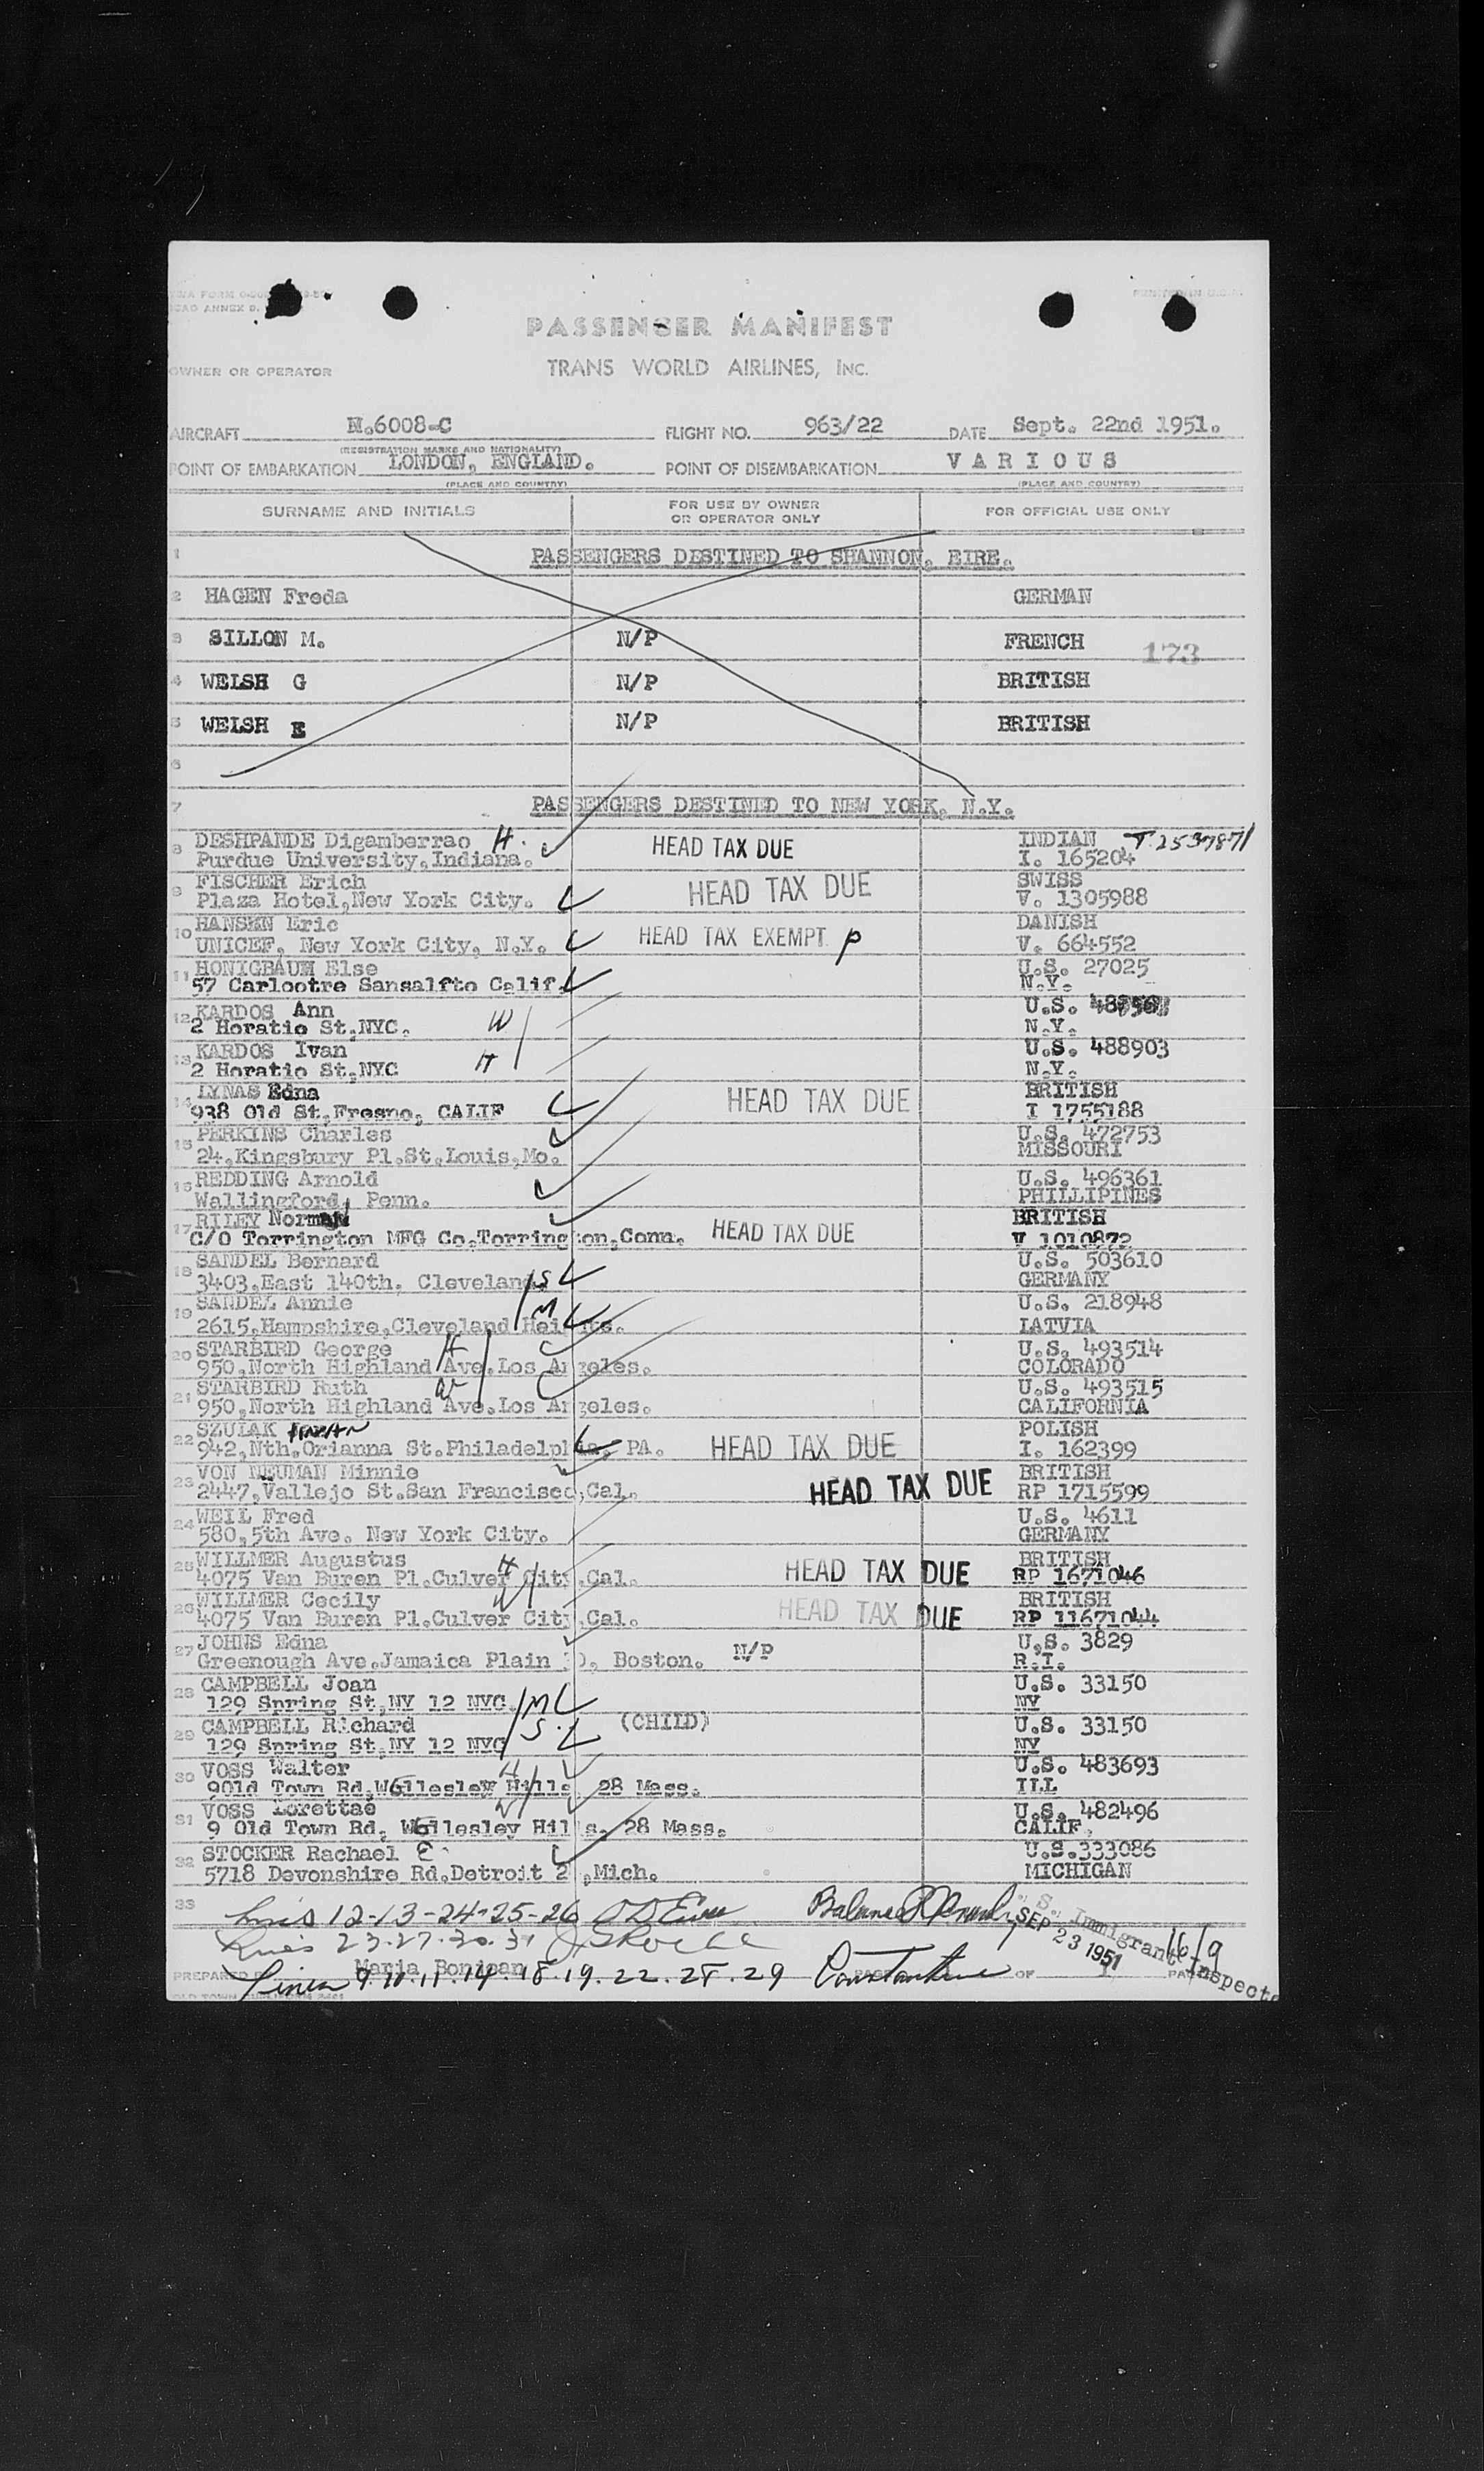 PRINTED IN U.S.A.
PASSENGER MANIFEST
OWNER OR OPERATOR TRANS WORLD AIRLINES, INC.
AIRCRAFT N.6008-C FLIGHT NO. 963/22 DATE Sept. 22nd 1951.
(REGISTRATION MARKS AND NATIONALITY)
POINT OF EMBARKATION LONDON, ENGLAND. POINT OF DISEMBARKATION VARIOUS
(PLACE AND COUNTRY) (PLACE AND COUNTRY)
SURNAME AND INITIALS FOR USE BY OWNER OR OPERATOR ONLY FOR OFFICIAL USE ONLY
1 PASSENGERS DESTINED TO SHANNON, EIRE.
2 HAGEN Freda GERMAN
3 SILLON M. N/P FRENCH 173
4 WELSH G N/P BRITISH
5 WELSH E N/P BRITISH
6
7 PASSENGERS DESTINED TO NEW YORK, N.Y.
8 DESHPANDE Digamberrao H. HEAD TAX DUE INDIAN T.2537871
Purdue University,Indiana. I. 165204
9 FISCHER Erich HEAD TAX DUE SWISS
Plaza Hotel,New York City. V. 1305988
10 HANSEN Eric HEAD TAX EXEMPT P DANISH
UNICEF, New York City, N.Y. V. 664552
11 HONIGBAUM Else U.S. 27025
57 Carlootre Sansalfto Calif. N.Y.
12 KARDOS Ann W U.S.
2 Horatio St.NYC. N.Y.
13 KARDOS Ivan H U.S. 488903
2 Horatio St,NYC N.Y.
14 LYNAS Edna HEAD TAX DUE BRITISH
938 Old St,Fresno, CALIF I 1755188
15 PERKINS Charles U.S. 472753
24,Kingsbury Pl.St.Louis,Mo. MISSOURI
16 REDDING Arnold U.S. 496361
Wallingford, Penn. PHILLIPINES
17 RILEY Norman HEAD TAX DUE BRITISH
C/O Torrington MFG Co,Torrington,Conn. V 1010872
18 SANDEL Bernard U.S. 503610
3403,East 140th, Cleveland. S GERMANY
19 SANDEL Annie M U.S. 218948
2615,Hampshire,Cleveland Heights. LATVIA
20 STARBIRD George H U.S. 493514
950,North Highland Ave.Los Angeles. COLORADO
21 STARBIRD Ruth W U.S. 493515
950,North Highland Ave.Los Angeles. CALIFORNIA
22 SZULAK HEAD TAX DUE POLISH
942,Nth,Orianna St.Philadelphia, PA. I. 162399
23 VON NEUMAN Minnie HEAD TAX DUE BRITISH
2447,Vallejo St.San Francisco,Cal. RP 1715599
24 WEIL Fred U.S. 4611
580,5th Ave. New York City. GERMANY
25 WILLMER Augustus H HEAD TAX DUE BRITISH
4075 Van Buren Pl.Culver City.Cal. RP 1671046
26 WILLMER Cecily W HEAD TAX DUE BRITISH
4075 Van Buren Pl.Culver City.Cal. RP 11671044
27 JOHNS Edna N/P U.S. 3829
Greenough Ave.Jamaica Plain 30, Boston. R.I.
28 CAMPBELL Joan U.S. 33150
129 Spring St,NY 12 NYC. M NY
29 CAMPBELL Richard S. (CHILD) U.S. 33150
129 Spring St,NY 12 NYC NY
30 VOSS Walter H U.S. 483693
9Old Town Rd,Wellesley Hills 28 Mass. ILL
31 VOSS Lorettae W U.S. 482496
9 Old Town Rd, Wellesley Hills, 28 Mass. CALIF.
32 STOCKER Rachael E U.S.333086
5718 Devonshire Rd.Detroit 2 ,Mich. MICHIGAN
33 Lines 12-13-24-25-26
Lines 23.27.30.31
PREPARED BY Maria Bonigan OF 1
Lines 9.10.11.14.18.19.22.28.29 Constantine
U. S. Immigrant Inspector
SEP 23 1951